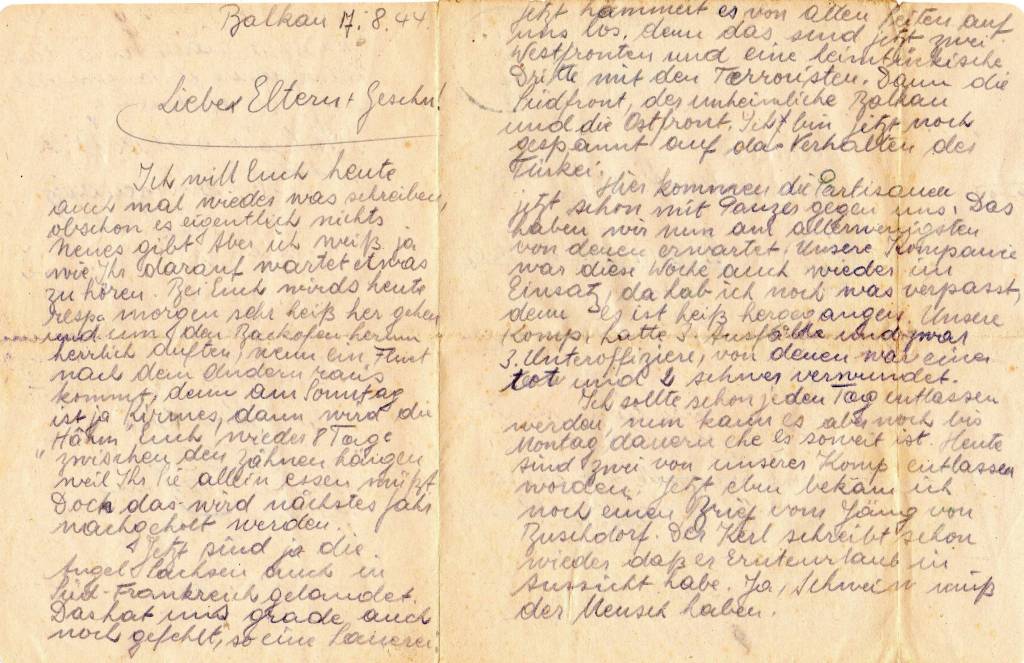 Balkan 17.8.44.
Liebe Eltern + Geschw.!
Ich will Euch heute
auch mal wieder was schreiben,
obschon es eigentlich nichts
neues gibt. Aber ich weiß ja
wie Ihr darauf wartet etwas
zu hören. Bei Euch wirds heute
resp. morgen sehr heiß her gehen
und um den Backofen herum
herrlich duften, wenn ein
nach dem Andern raus
kommt, denn am Sonntag
ist ja Kirmes, dann wird die
"Hähm" Euch wieder 8 Tage
zwischen den Zähnen hängen
weil Ihr Sie allein essen müßt.
Doch das wird nächstes Jahr
nachgeholt werden.
Jetzt sind ja die
Angel-Sachsen auch in
Süd-Frankreich gelandet.
Das hat uns grade auch
noch gefehlt, so eine Sauerei
Jetzt hämmert es von allen Seiten auf
uns los, denn das sind jetzt zwei
Westfronten und eine heimtückische
Dritte mit den Terroristen. Dann die
Südfront, der unheimliche Balkan
und die Ostfront. Ich bin jetzt noch
gespannt auf das Verhalten der
Türkei.
Hier kommen die Partisanen
jetzt schon mit Panzer gegen uns. Das
haben wir nun am allerwenigsten
von denen erwartet. Unsere Kompanie
war diese Woche auch wieder im
Einsatz, da hab ich noch was verpasst,
denn es ist heiß hergegangen. Unsere
Komp. hatte 3 Ausfälle und zwar
3. Unteroffiziere, von denen war einer
tot und 2 schwer verwundet.
Ich sollte schon jeden Tag entlassen
werden, nun kann es aber noch bis
Montag dauern ehe es soweit ist. Heute
sind zwei von unserer Komp. entlassen
worden. Jetzt eben bekam ich
noch einen Brief vom von
Buschdorf. Der Kerl schreibt schon
wieder daß er Ernteurlaub in
Aussicht habe. Ja, Schwein muß
der Mensch haben.